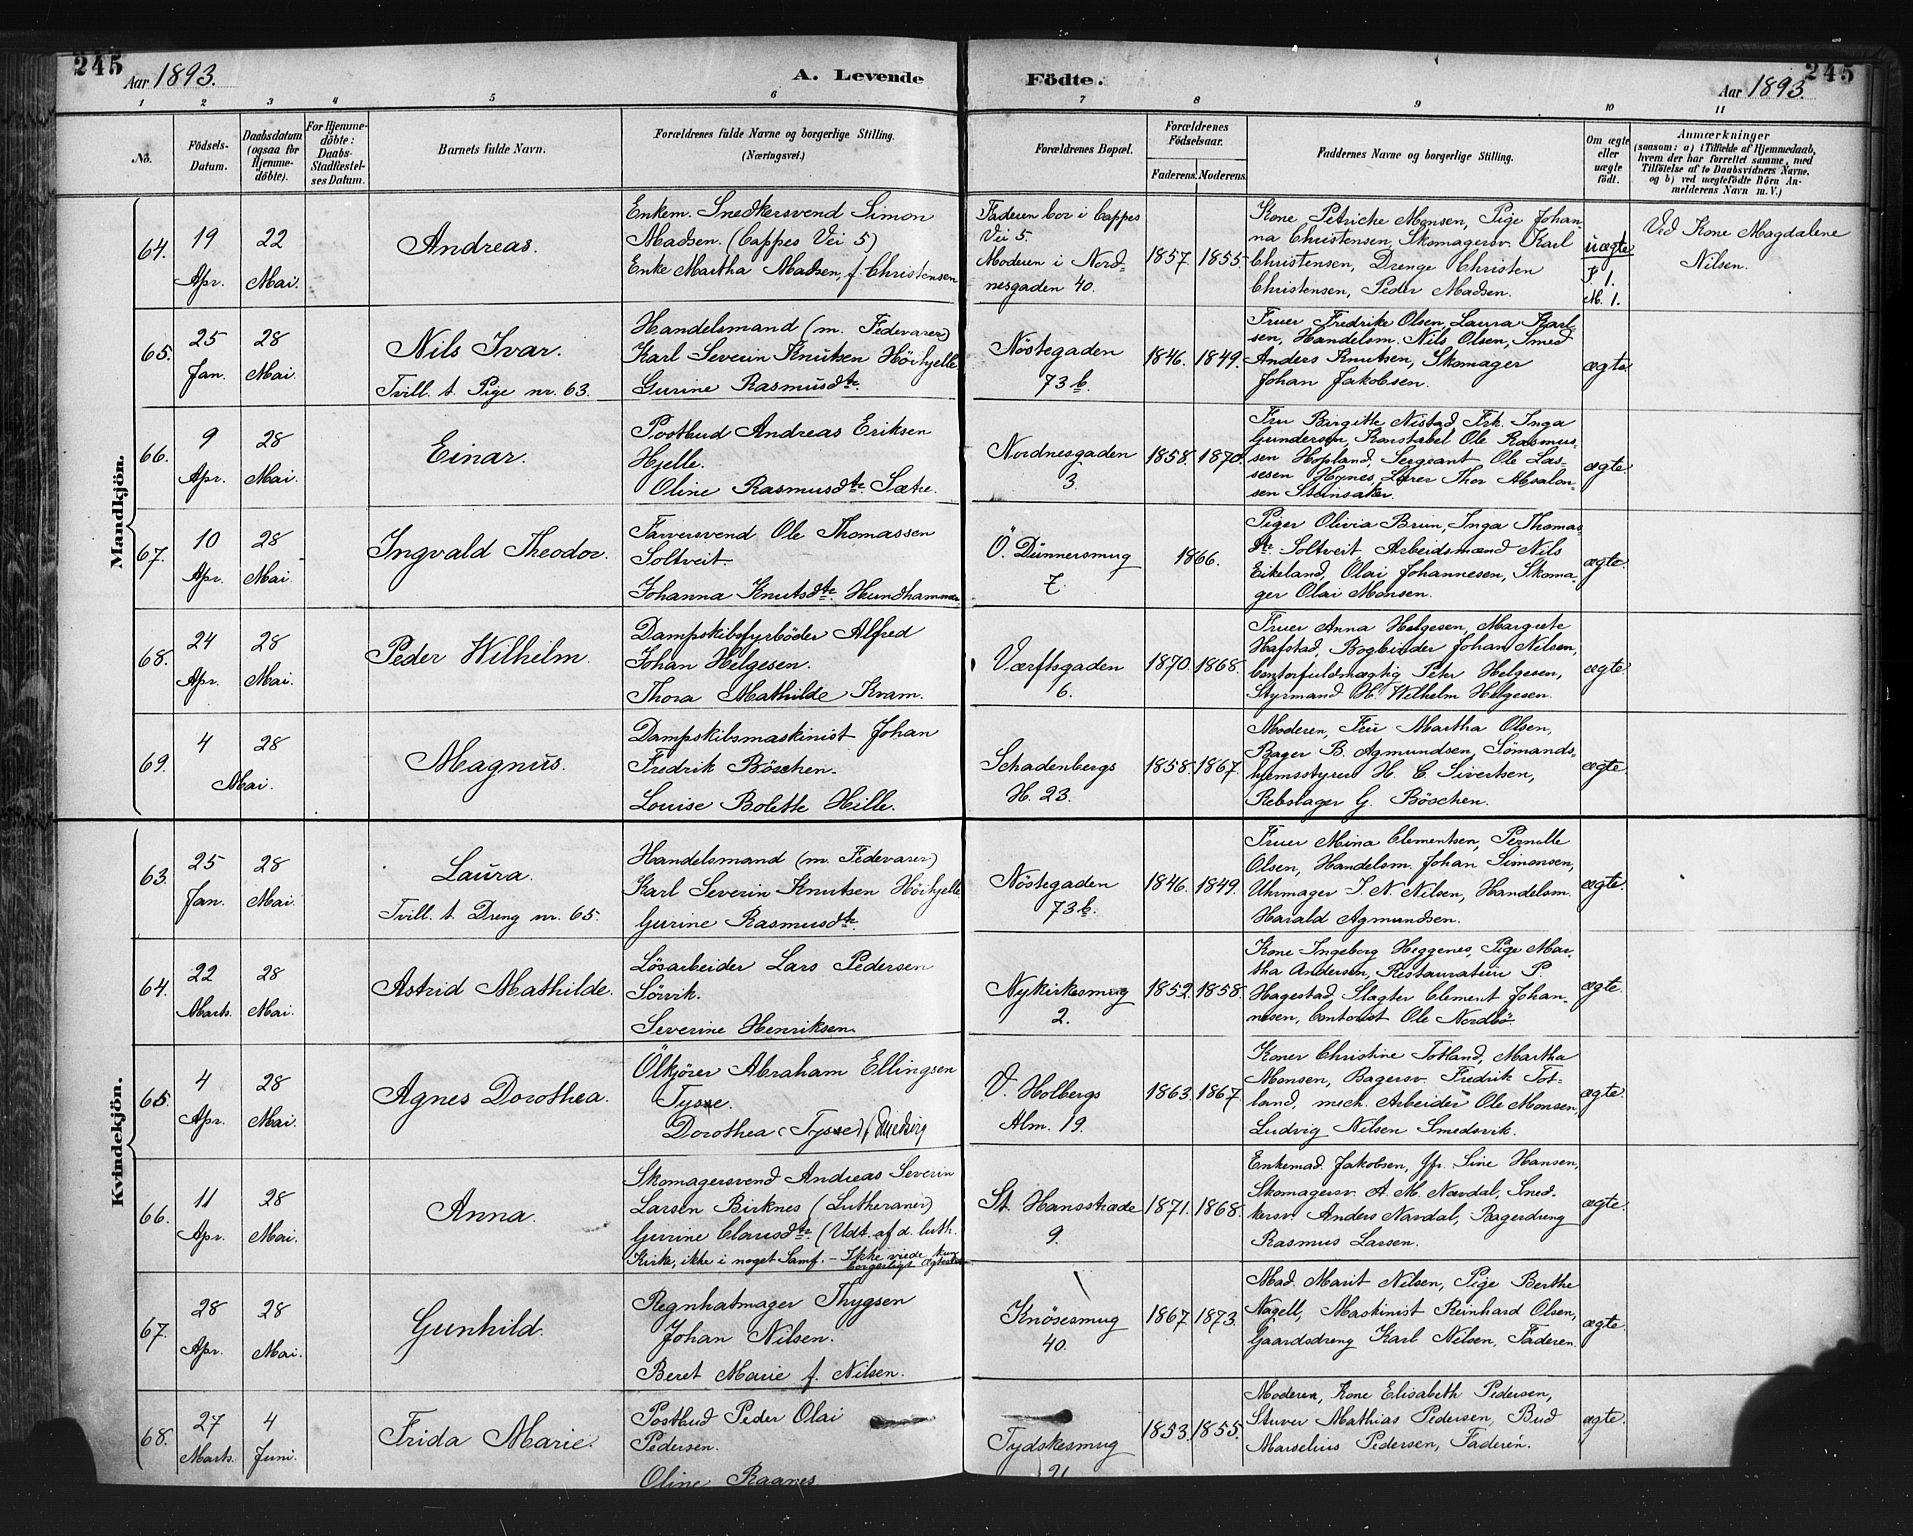 245
Aar 1893.
A. Levende Födte.
Aar 1893.
245
1 2 3 4 5 6 7 8 9 10 11
No.
Födsels-
Datum.
Daabsdatum
(ogsaa for
Hjemme-
döbte).
For Hjemme-
döbte:
Daabs-
Stadfæstel-
ses Datum.
Barnets fulde Navn.
Forældrenes fulde Navne og borgerlige Stilling.
(Næringsvei.)
Forældrenes Bopæl.
Forældrenes
Födselsaar.
Faderens. Moderens.
Faddernes Navne og borgerlige Stilling.
Om ægte
eller
uægte
födt.
Anmærkninger
(saasom: a) i Tilfælde af Hjemmedaab,
hvem der har forrettet samme, med
Tilföielse af to Daabsvidners Navne.
og b) ved uægtefödte Börn An-
melderens Navn m. V.)
Mandkjön.
64.
19
Apr.
22
Mai.
Andreas.
Enkem. Snedkersvend Simon
Madsen. (Cappes Vei 5)
Enke Martha Madsen, f. Christensen
Faderen bor i Cappes
Vei 5.
Moderen i Nord-
nesgaden 40.
1857. 1855.
Kone Petriche Monsen, Pige Johan-
na Christensen, Skomagersv. Karl
Christensen, Drenge Christen
Christensen, Peder Madsen.
uægte
F. 1.
M. 1.
Ved Kone Magdalene
Nilsen.
65.
25
Jan.
28
Mai.
Nils Ivar.
Tvill. t. Pige nr. 63.
Handelsmand (m. Fedevarer)
Karl Severin Knutsen Höihjelle
Gurine Rasmusdtr.
Nöstegaden
73 b.
1846. 1849.
Fruer Fredrike Olsen, Laura Karl-
sen, Handelsm. Nils Olsen, Smed
Anders Knutsen, Skomager
Johan Jakobsen.
ægte.
66.
9
Apr.
28
Mai.
Einar.
Postbud Andreas Eriksen
Hjelle.
Oline Rasmusdtr. Sætre.
Nordnesgaden
3.
1858. 1870.
Fru Birgitte Nistad, Frk. Inga
Gundersen, Konstabel Ole Rasmus-
sen Hopland, Sergeant Ole Las-
sesen Hynes, Lærer Thor Absalon-
sen Steinsaker.
ægte.
67.
10
Apr.
28
Mai.
Ingvald Theodor.
Farversvend Ole Thomassen
Soltveit.
Johanna Knutsdtr. Hundhammer
Ö. Dünnersmug
7.
1866.
Piger Olivia Brun, Inga Thomas-
dtr. Soltveit, Arbeidsmænd Nils
Eikeland, Olai Johannesen, Skoma-
ger Olai Monsen.
ægte.
68.
24
Apr.
28
Mai.
Peder Wilhelm.
Dampskibsfyrböder Alfred
Johan Helgesen.
Thora Mathilde Kvam.
Værftsgaden
6.
1870. 1868.
Fruer Anna Helgesen, Margrete
Hafstad, Bogbinder Johan Nilsen,
Contorfuldmægtig Peter Helgesen,
Styrmand H. Wilhelm Helgesen.
ægte.
69.
4
28
Mai.
Magnus.
Dampskibsmaskinist Johan
Fredrik Böschen.
Louise Bolette Hille.
Schadenbergs
H. 23.
1858. 1867.
Moderen, Fru Martha Olsen,
Bager B. Agmundsen, Sömands-
hjemsstyrer H. C. Sivertsen,
Rebslager G. Böschen.
ægte.
Kvindekjön.
63.
25
Jan.
28
Mai.
Laura.
Tvill. t. Dreng nr. 65.
Handelsmand (m. Fedevarer)
Karl Severin Knutsen Höihjelle
Gurine Rasmusdtr.
Nöstegaden
73 b.
1846. 1849.
Fruer Mina Clementsen, Pernille
Olsen, Handelsm. Johan Simonsen,
Uhrmager J. N. Nilsen, Handelsm.
Harald Agmundsen.
ægte.
64.
22
Marts.
28
Mai.
Astrid Mathilde.
Lösarbeider Lars Pedersen
Sörvik.
Severine Henriksen.
Nykirkesmug
2.
1852. 1858.
Kone Ingeborg Heggenes, Pige Mar-
tha Andersen, Restauratür P.
Hagestad, Slagter Clement Johan-
nesen, Contorist Ole Nordbö.
ægte.
65.
4
Apr.
28
Mai.
Agnes Dorothea.
Ölkjörer Abraham Ellingsen
Tysse.
Dorothea (Tysse) f.
V. Holbergs
Alm. 19.
1863. 1867.
Koner Christine Totland, Martha
Monsen, Bagersv. Fredrik Tot-
land, mech. Arbeider Ole Monsen,
Ludvig Nilsen Smedsvik.
ægte.
66.
11
Apr.
28
Mai.
Anna.
Skomagersvend Andreas Severin
Larsen Birknes (Lutheraner)
Gurine Clausdtr. (Udt. af d. luth.
Kirke, ikke i noget Samf. - Ikke viede kun
borgerligt
St. Hansstræde
9.
1871. 1868.
Enkemad. Jakobsen, Jfr. Sine Hansen,
Skomagersv. A. M. Navdal, Sned-
kersv. Anders Navdal, Bagerdreng
Rasmus Larsen.
ægte.
67.
28
Apr.
28
Mai.
Gunhild.
Regnhatmager Thygsen
Johan Nilsen.
Beret Marie f. Nilsen.
Knösesmug
40.
1867 1873.
Mad. Marit Nilsen, Pige Berthe
Nagell, Maskinist Reinhard Olsen,
Gaardsdreng Karl Nilsen, Faderen.
ægte.
68.
27
Marts.
4
Juni.
Frida Marie.
Postbud Peder Olai
Pedersen.
Oline Raanes
Tydskesmug
21
1853. 1855.
Moderen, Kone Elisabeth Pedersen,
Stuver Mathias Pedersen, Bud
Marselius Pedersen, Faderen.
ægte.